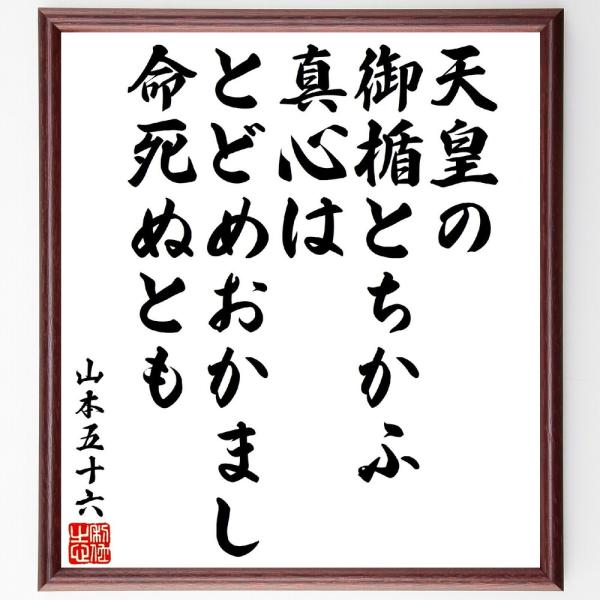 天皇の
御楯とちかふ
真心は
とどめおかまし
命死ぬとも
山本五十六